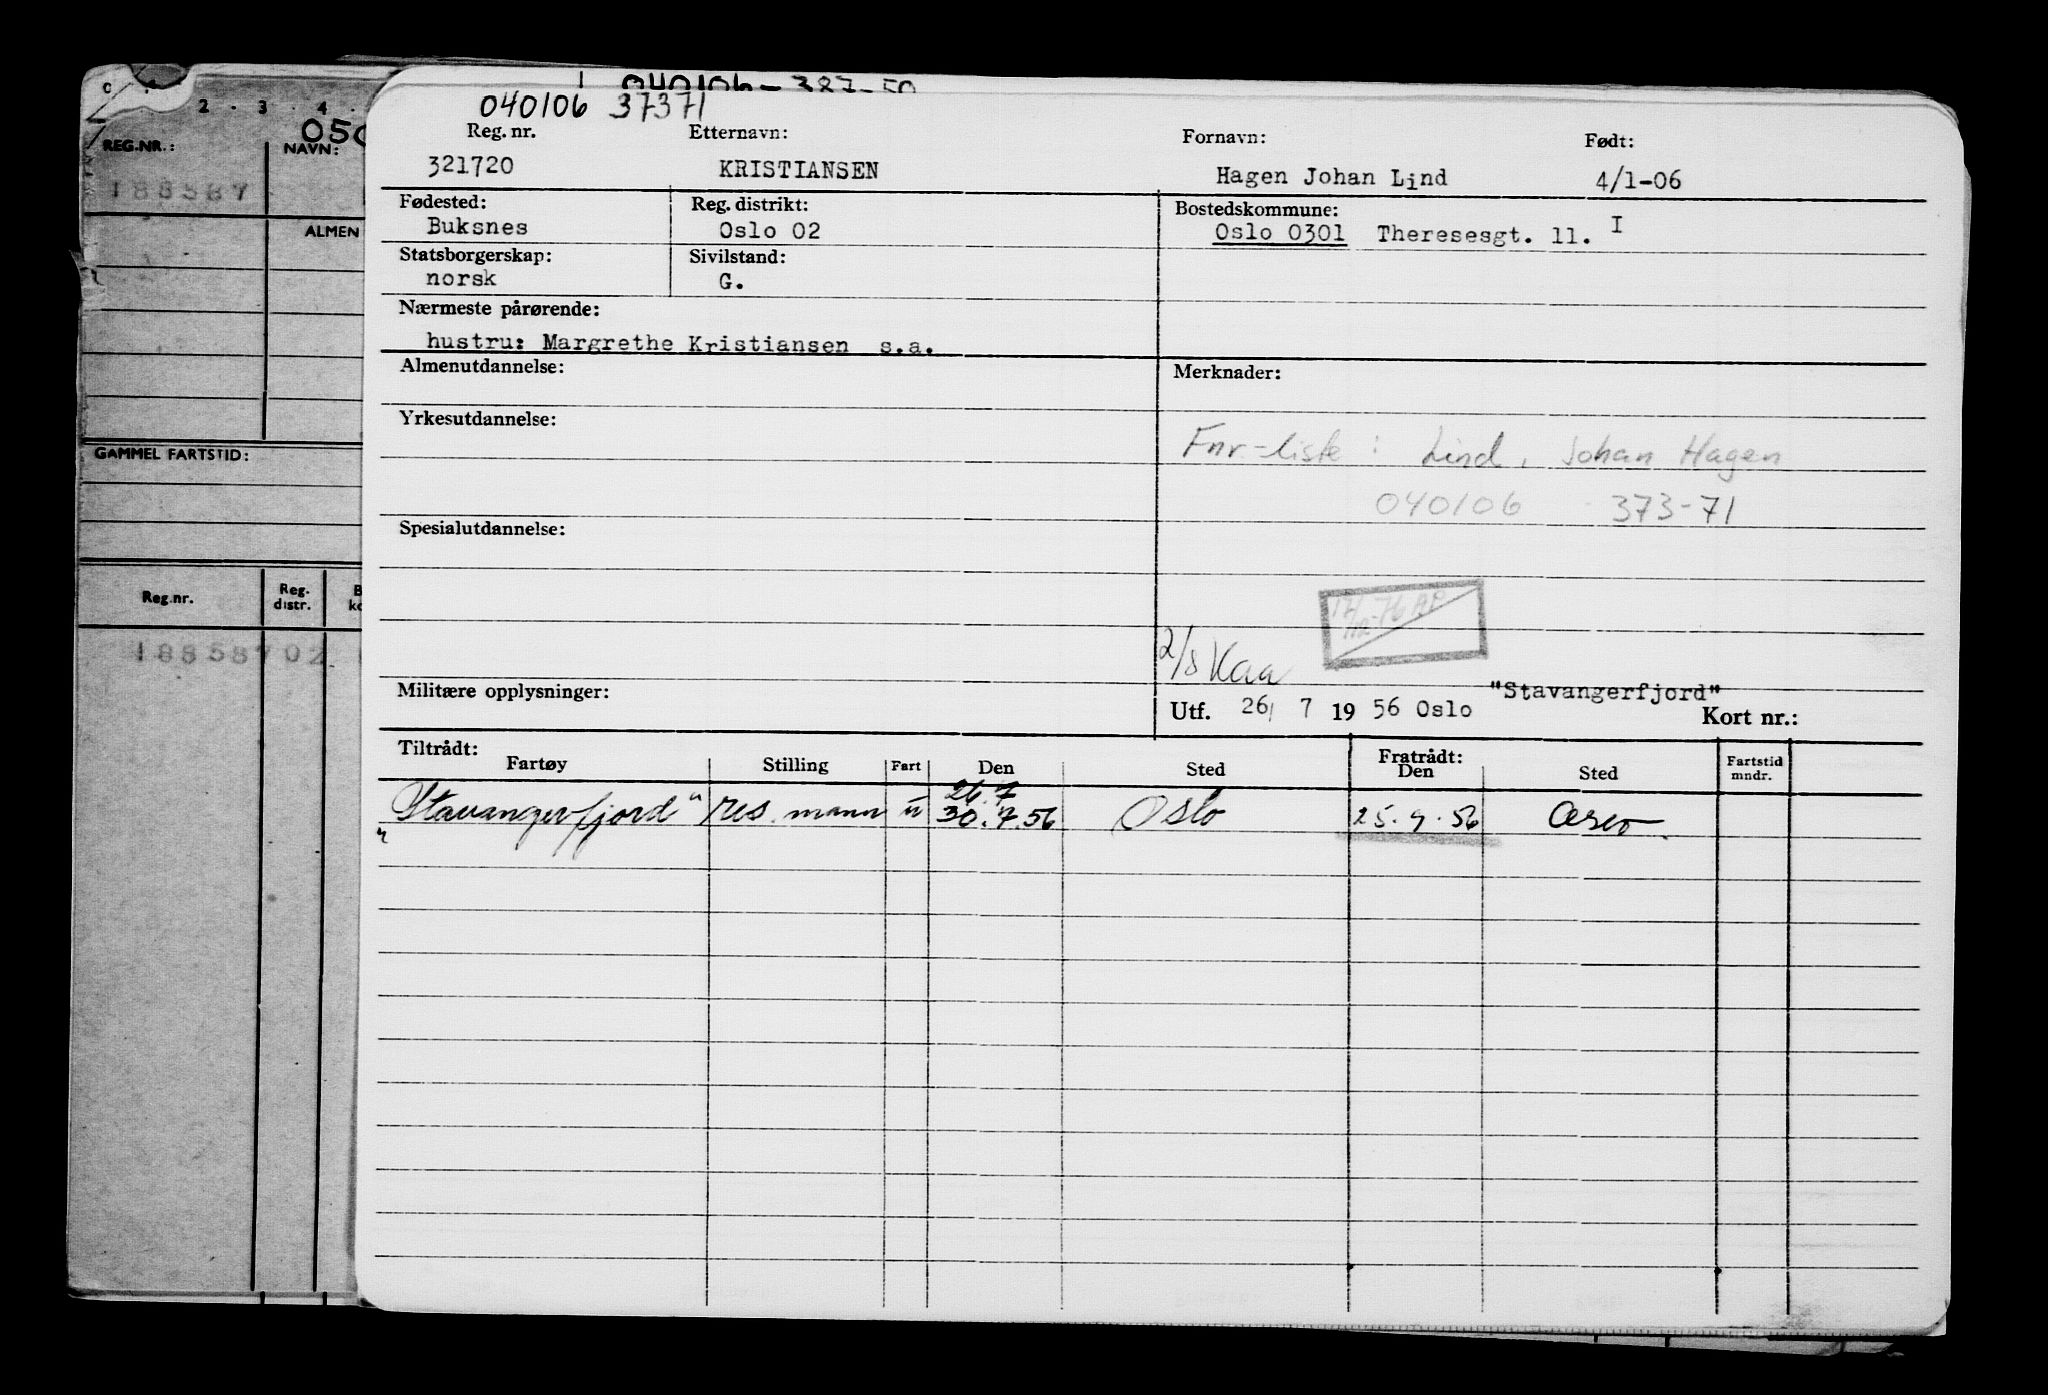 040106-387-50
040106 37371
Reg. nr. Etternavn: Fornavn: Født:
321720 KRISTIANSEN Hagen Johan Lind 4/1-06
Fødested: Reg. distrikt: Bostedskommune:
Buksnes Oslo 02 Oslo 0301 Theresesgt. 11. I
Statsborgerskap: Sivilstand:
norsk G.
Nærmeste pårørende:
hustru: Margrethe Kristiansen s.a.
Almenutdannelse: Merknader:
Yrkesutdannelse:
Fnr-liste: Lind, Johan Hagen
040106 373-71
Spesialutdannelse:
17/12-76 AP
2/8 Kaa
Militære opplysninger: "Stavangerfjord"
Utf. 26/ 7 19 56 Oslo Kort nr.:
Tiltrådt: Fratrådt:
Fartøy Stilling Fart Den Sted Den Sted Fartstid mndr.
26.7
"Stavangerfjord" res. mann u 30.7.56 Oslo 25.9.56 Oslo
C 2 3 4
050
REG.NR.: NAVN:
188587
ALMEN
GAMMEL FARTSTID:
Reg.nr. Reg. distr.
188587 02